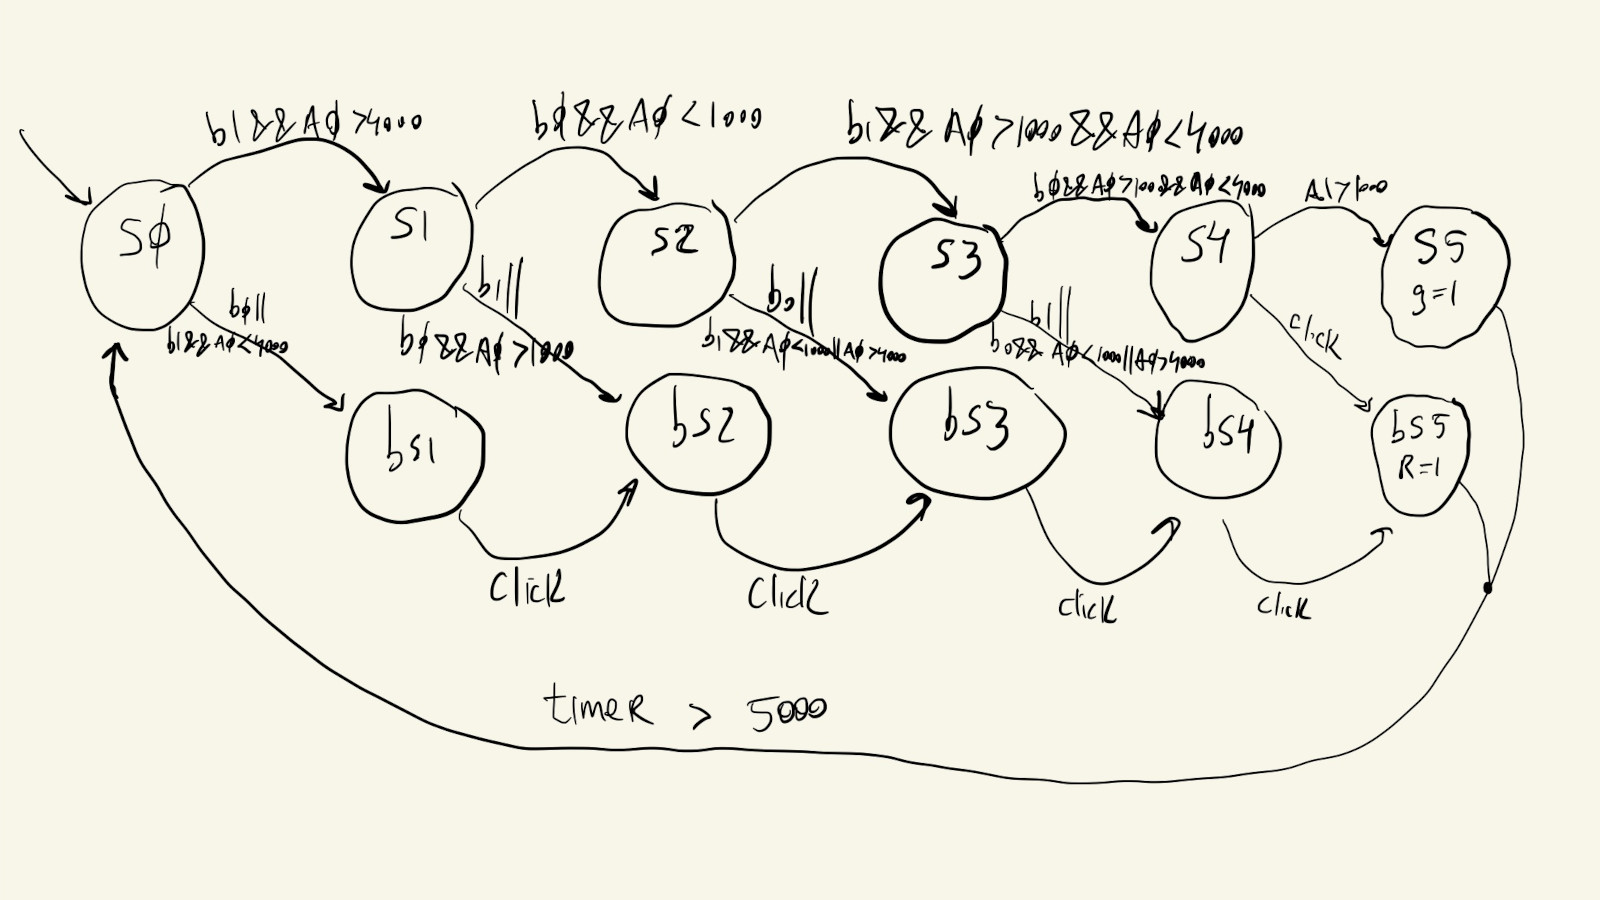 b1&&Aφ>4000
bφ&&Aφ<1000
b1&&Aφ>1000&&Aφ<4000
bφ&&Aφ>1000&&Aφ<4000
A1>1000
Sφ
S1
S2
S3
S4
S5
g=1
bφ||
b1&&Aφ<4000
b1||
bφ&&Aφ>1000
b0||
b1&&Aφ<1000||Aφ>4000
b1||
b0&&Aφ<1000||Aφ>4000
click
bs1
bs2
bs3
bs4
bs5
R=1
Click
Click
click
click
timeR > 5000